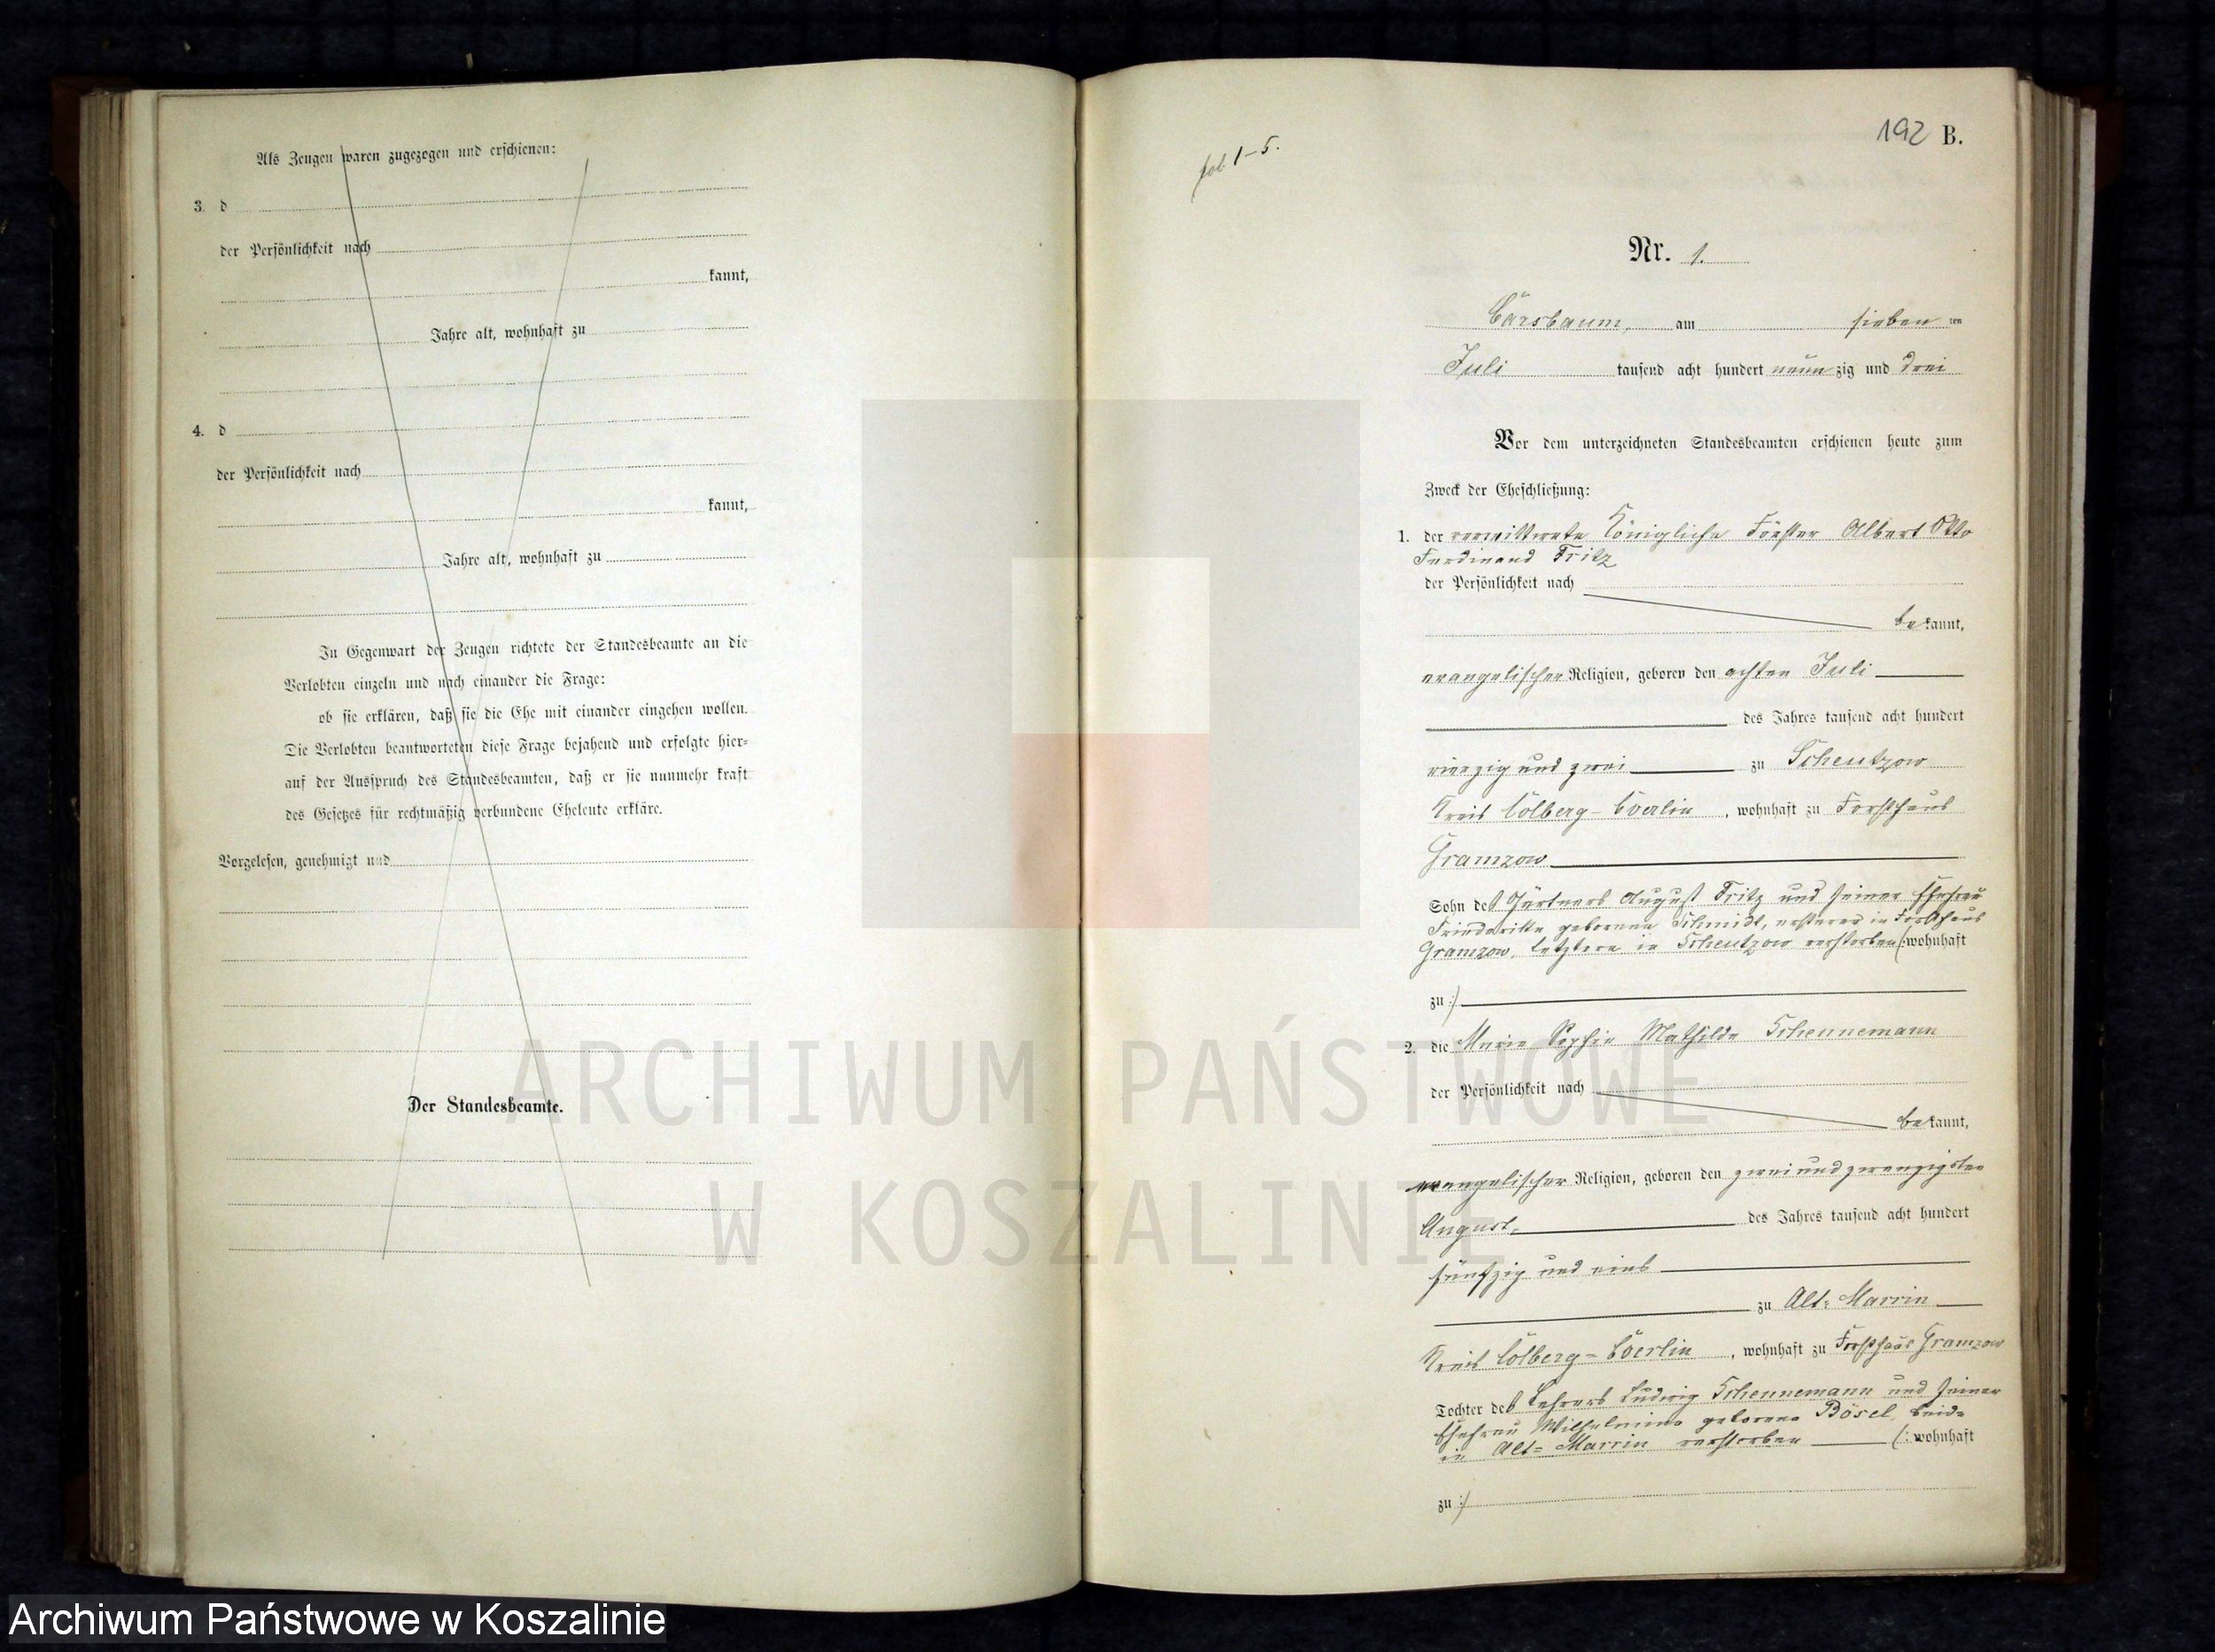 Als Zeugen waren zugezogen und erschienen:
3. d
der Persönlichkeit nach
kannt,
Jahre alt, wohnhaft zu
4. d
der Persönlichkeit nach
kannt,
Jahre alt, wohnhaft zu
In Gegenwart der Zeugen richtete der Standesbeamte an die
Verlobten einzeln und nach einander die Frage:
ob sie erklären, daß sie die Ehe mit einander eingehen wollen.
Die Verlobten beantworteten diese Frage bejahend und erfolgte hier-
auf der Ausspruch des Standesbeamten, daß er sie nunmehr kraft
des Gesetzes für rechtmäßig verbundene Eheleute erkläre.
Vorgelesen, genehmigt und
Der Standesbeamte.
fol. 1-5.
192 B.
Nr. 1.
Carsbaum, am sieben ten
Juli tausend acht hundert neun zig und drei
Vor dem unterzeichneten Standesbeamten erschienen heute zum
Zweck der Eheschließung:
1. der verwittwete Königliche Förster Albert Otto
Ferdinand Fritz
der Persönlichkeit nach
be kannt,
evangelischer Religion, geboren den achten Juli
des Jahres tausend acht hundert
vierzig und zwei zu Scheutzow
Kreis Colberg-Coerlin, wohnhaft zu Forsthaus
Gramzow
Sohn des Gärtners August Fritz und seiner Ehefrau
Friederike geborene Schmidt, ersterer in Forsthaus
Gramzow, letztere in Scheutzow verstorben (: wohnhaft
zu :)
2. die Marie Sophie Mathilde Schennemann
der Persönlichkeit nach
be kannt,
evangelischer Religion, geboren den zwei und zwanzigsten
August, des Jahres tausend acht hundert
fünfzig und eins
zu Alt-Marrin
Kreis Colberg-Coerlin, wohnhaft zu Forsthaus Gramzow
Tochter des Lehrers Ludwig Schennemann und seiner
Ehefrau Wilhelmine geborene Bösel, beide
in Alt-Marrin verstorben (: wohnhaft
zu :)
ARCHIWUM PAŃSTWOWE
W KOSZALINIE
Archiwum Państwowe w Koszalinie